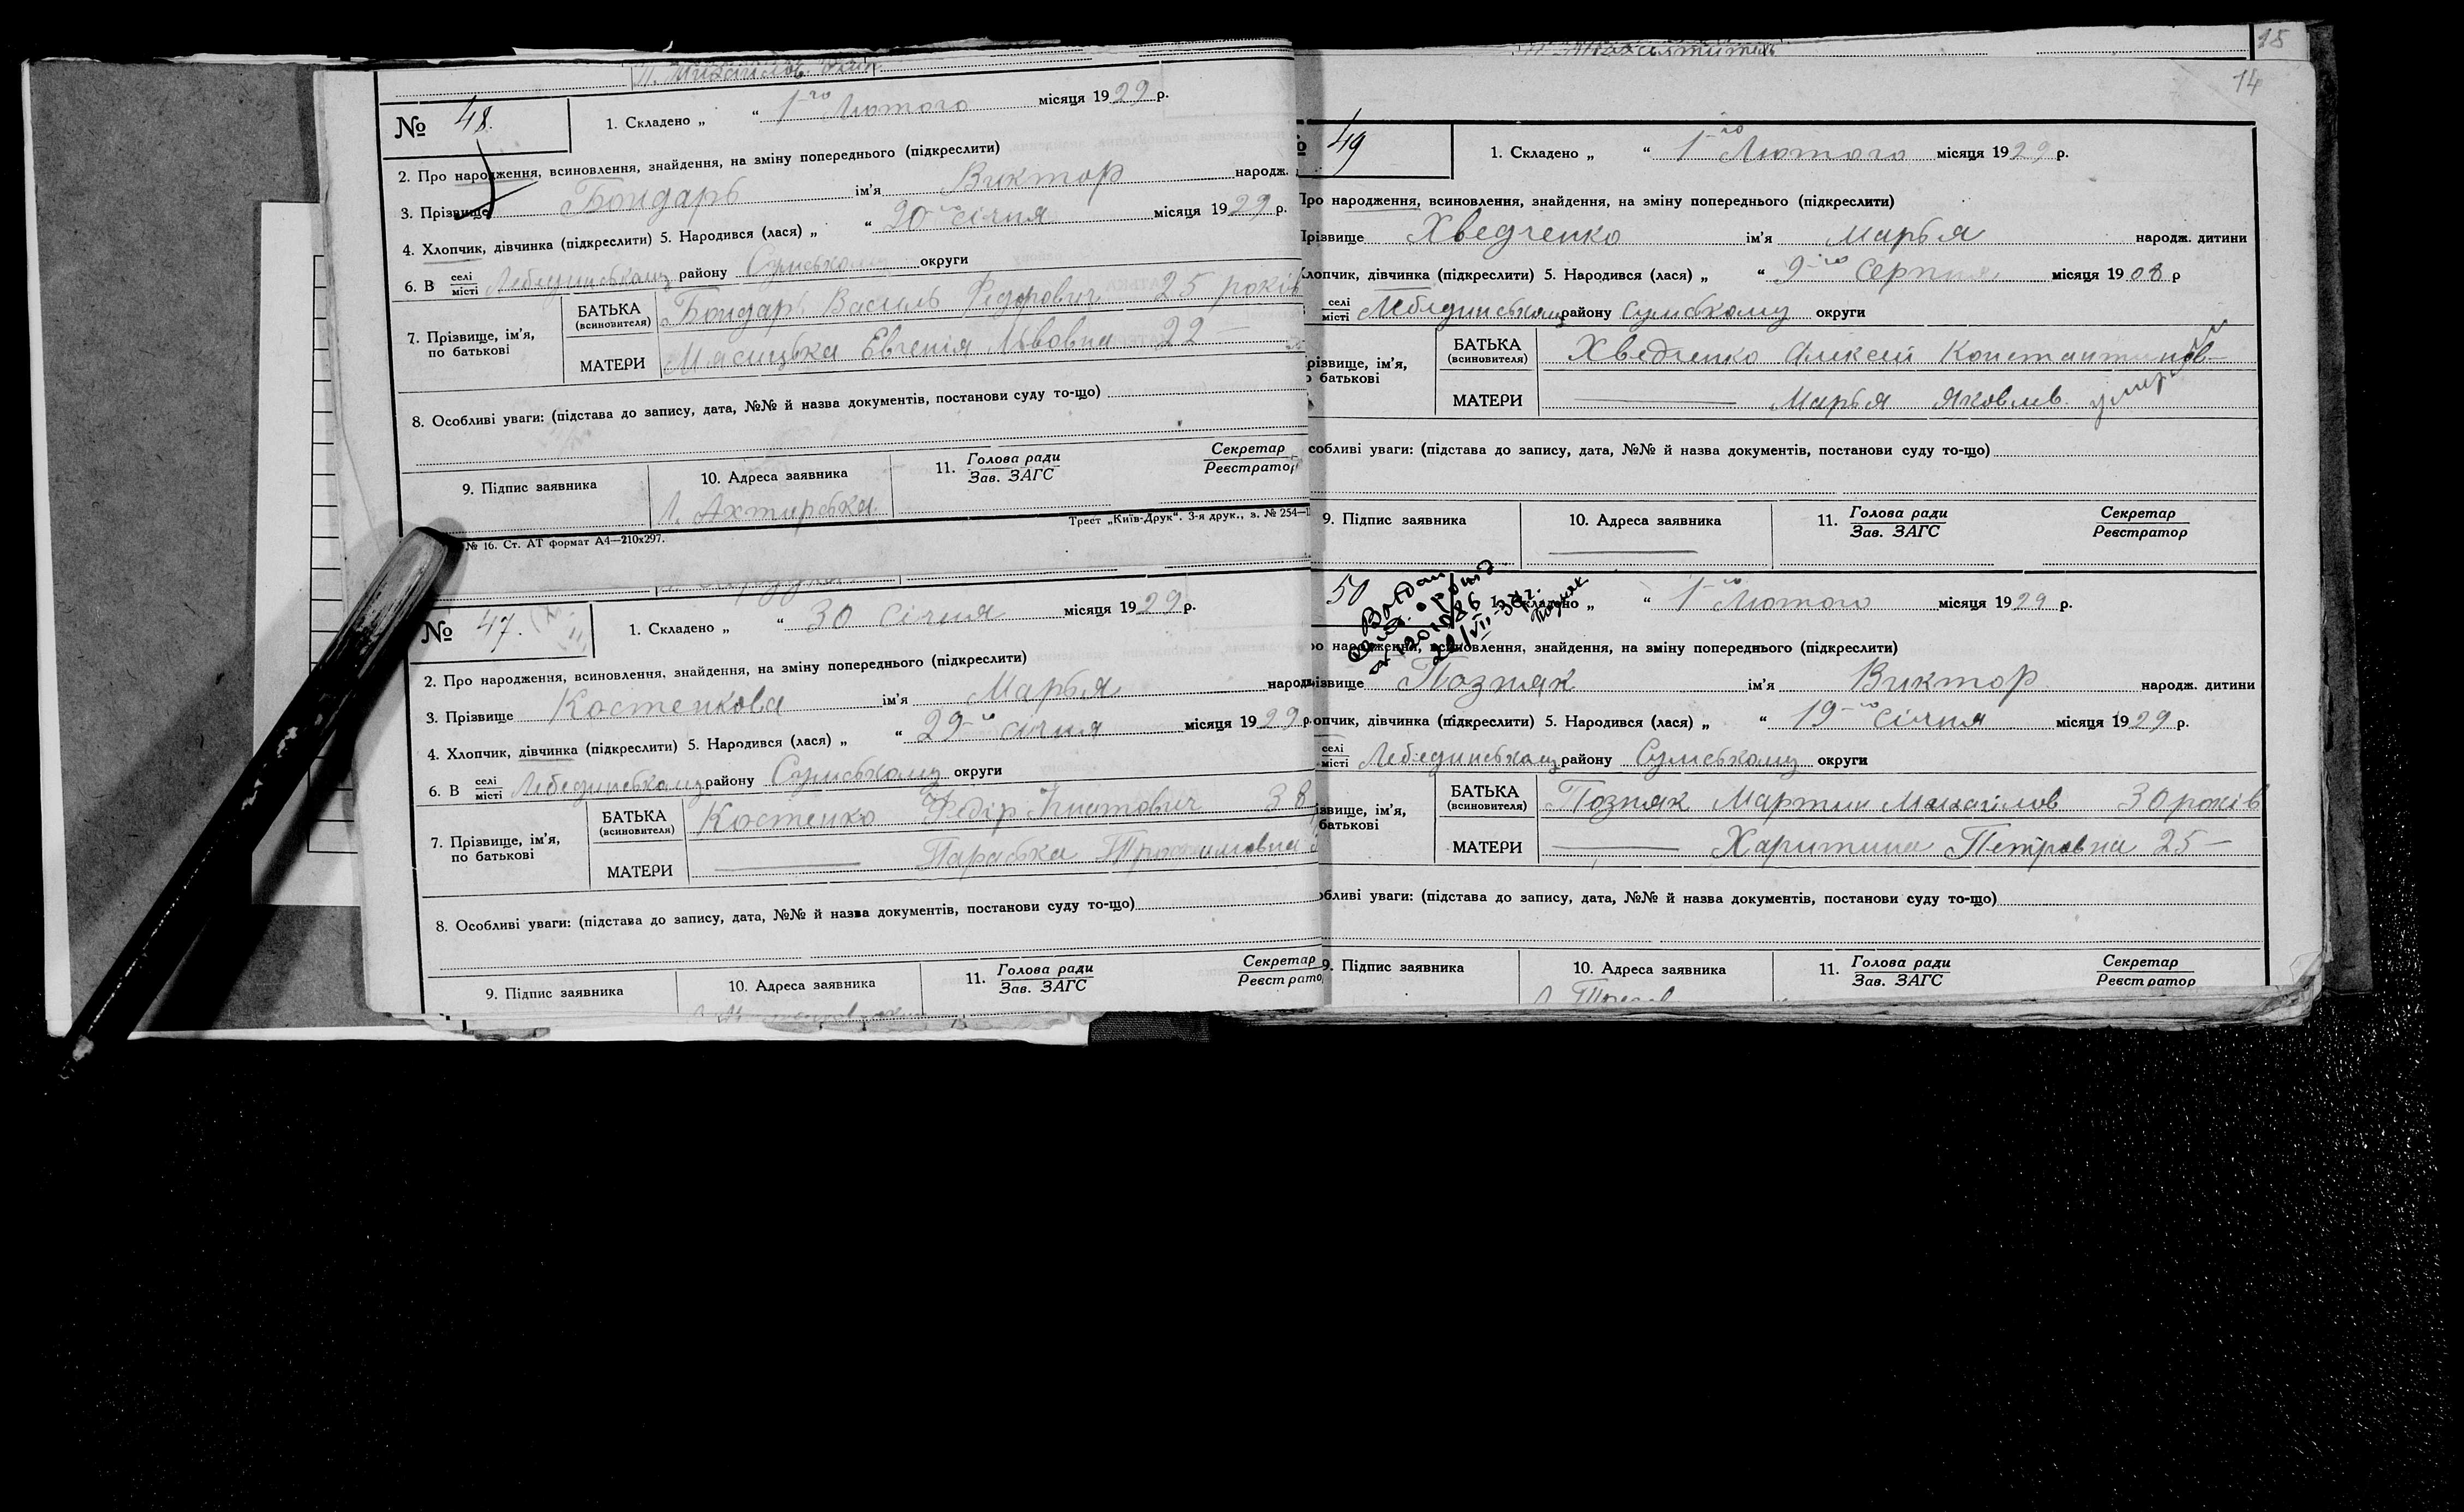 № 48.
1. Складено „ “ 1-го Лютого місяця 1929 р.
2. Про народження, всиновлення, знайдення, на зміну попереднього (підкреслити)
3. Прізвище Бондарь ім'я Виктор народж.
4. Хлопчик, дівчинка (підкреслити) 5. Народився (лася) „ “ 20-го січня місяця 1929 р.
6. В селі місті Лебединському району Сумському округи
7. Прізвище, ім'я, по батькові
БАТЬКА (всиновителя) Бондарь Василь Федорович 25 років
МАТЕРИ Мясицька Евгенія Львовна 22 —
8. Особливі уваги: (підстава до запису, дата, №№ й назва документів, постанови суду то-що)
9. Підпис заявника
10. Адреса заявника
Л. Ахтирська
11. Голова ради Зав. ЗАГС
Секретар Реєстратор
№ 16. Ст. АТ формат А4—210х297.
Трест „Київ-Друк“. 3-я друк., з. № 254—
№ 47.
1. Складено „ “ 30 Січня місяця 1929 р.
2. Про народження, всиновлення, знайдення, на зміну попереднього (підкреслити)
3. Прізвище Костенкова ім'я Марья народ
4. Хлопчик, дівчинка (підкреслити) 5. Народився (лася) „ “ 29-го січня місяця 1929 р.
6. В селі місті Лебединському району Сумському округи
7. Прізвище, ім'я, по батькові
БАТЬКА (всиновителя) Костенко Федір 38
МАТЕРИ — Параська Трохимовна
8. Особливі уваги: (підстава до запису, дата, №№ й назва документів, постанови суду то-що)
9. Підпис заявника
10. Адреса заявника
11. Голова ради Зав. ЗАГС
Секретар Реєстрато
15
14
49
1. Складено „ “ 1-го Лютого місяця 1929 р.
Про народження, всиновлення, знайдення, на зміну попереднього (підкреслити)
Прізвище Хведченко ім'я Марья народж. дитини
лопчик, дівчинка (підкреслити) 5. Народився (лася) „ “ 9-го Серпня місяця 1908 р
селі місті Лебединському району Сумському округи
різвище, ім'я, о батькові
БАТЬКА (всиновителя) Хведченко Алексей Константинов—
МАТЕРИ — Марья Яковлев. умерший
собливі уваги: (підстава до запису, дата, №№ й назва документів, постанови суду то-що)
9. Підпис заявника
10. Адреса заявника
11. Голова ради Зав. ЗАГС
Секретар Реєстратор
50
1. Складено „ “ 1-го Лютого місяця 1929 р.
ро народження, всиновлення, знайдення, на зміну попереднього (підкреслити)
різвище Позняк ім'я Виктор народж. дитини
опчик, дівчинка (підкреслити) 5. Народився (лася) „ “ 19-го січня місяця 1929 р.
селі місті Лебединському району Сумському округи
ізвище, ім'я, батькові
БАТЬКА (всиновителя) Позняк Мартин Михайлов 30 років
МАТЕРИ — Харитина Петровна 25 —
обливі уваги: (підстава до запису, дата, №№ й назва документів, постанови суду то-що)
9. Підпис заявника
10. Адреса заявника
11. Голова ради Зав. ЗАГС
Секретар Реєстратор